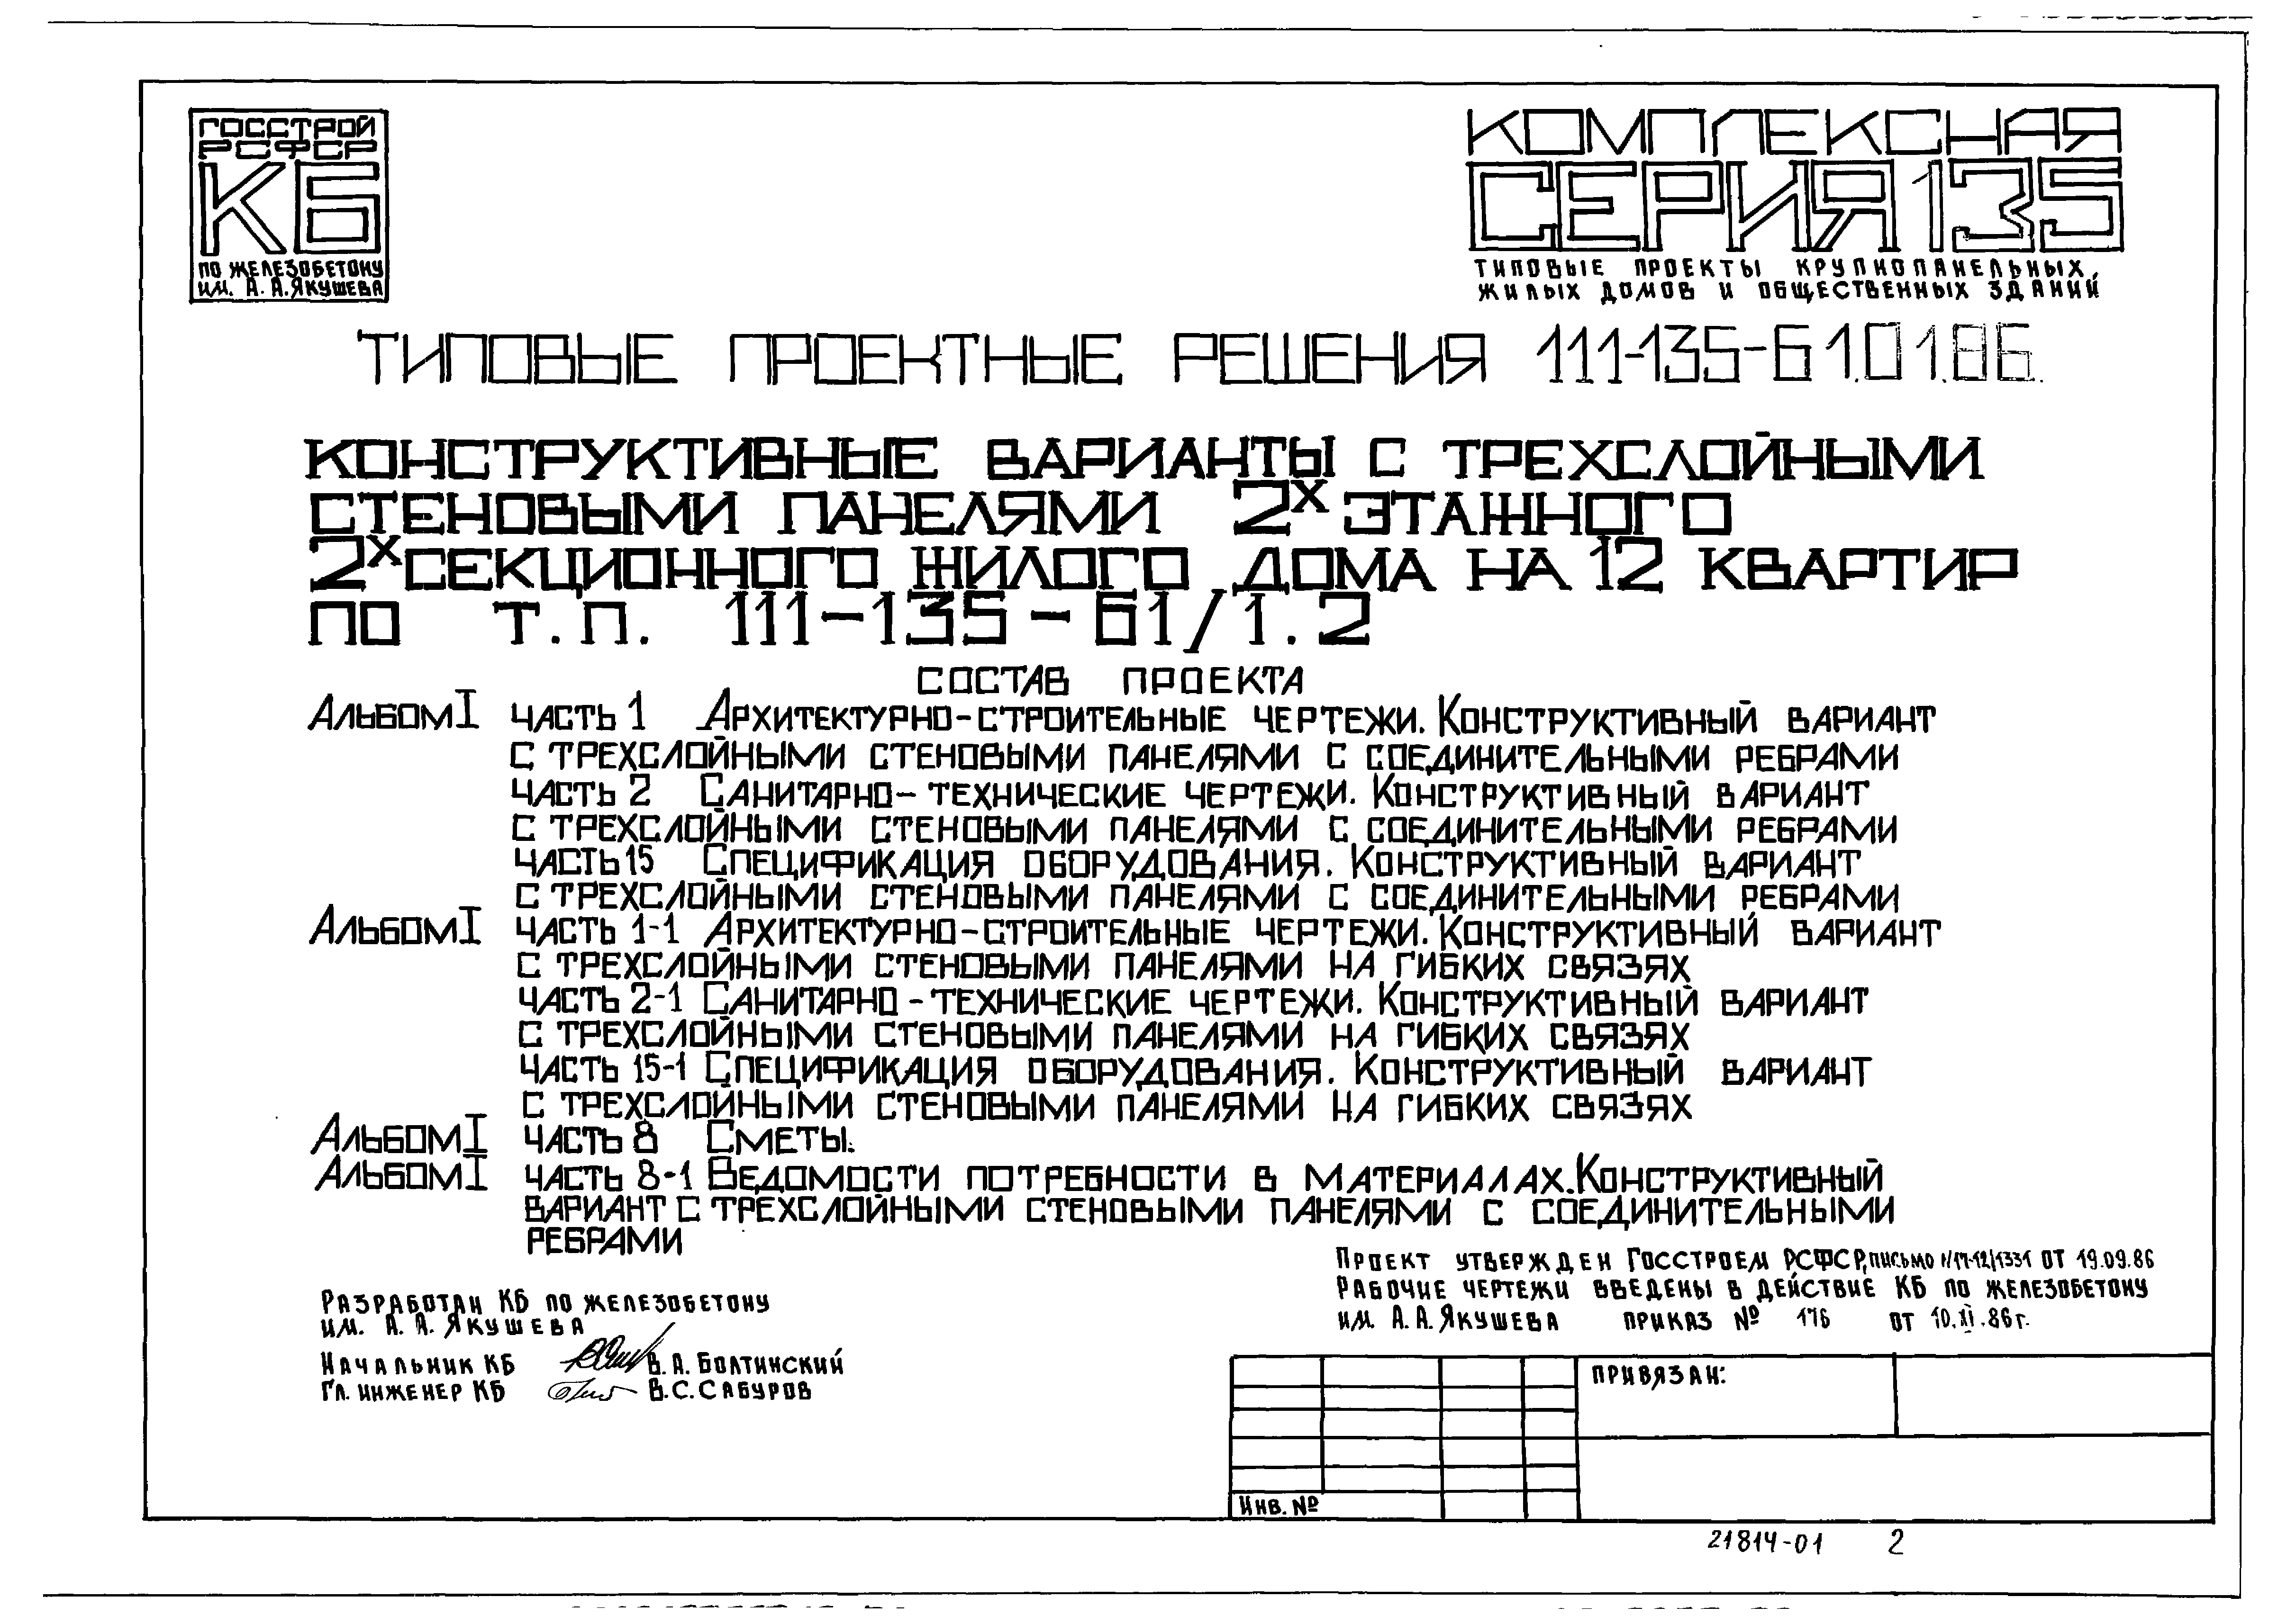 ГОССТРОЙ
РСФСР
КБ
ПО ЖЕЛЕЗОБЕТОНУ
ИМ. А. А. ЯКУШЕВА
КОМПЛЕКСНАЯ
СЕРИЯ 135
ТИПОВЫЕ ПРОЕКТЫ КРУПНОПАНЕЛЬНЫХ
ЖИЛЫХ ДОМОВ И ОБЩЕСТВЕННЫХ ЗДАНИЙ
ТИПОВЫЕ ПРОЕКТНЫЕ РЕШЕНИЯ 111-135-61.01.86.
КОНСТРУКТИВНЫЕ ВАРИАНТЫ С ТРЕХСЛОЙНЫМИ
СТЕНОВЫМИ ПАНЕЛЯМИ 2Х ЭТАЖНОГО
2Х СЕКЦИОННОГО ЖИЛОГО ДОМА НА 12 КВАРТИР
ПО Т.П. 111-135-61/1.2
СОСТАВ ПРОЕКТА
АЛЬБОМ I ЧАСТЬ 1 АРХИТЕКТУРНО-СТРОИТЕЛЬНЫЕ ЧЕРТЕЖИ. КОНСТРУКТИВНЫЙ ВАРИАНТ
С ТРЕХСЛОЙНЫМИ СТЕНОВЫМИ ПАНЕЛЯМИ С СОЕДИНИТЕЛЬНЫМИ РЕБРАМИ
ЧАСТЬ 2 САНИТАРНО-ТЕХНИЧЕСКИЕ ЧЕРТЕЖИ. КОНСТРУКТИВНЫЙ ВАРИАНТ
С ТРЕХСЛОЙНЫМИ СТЕНОВЫМИ ПАНЕЛЯМИ С СОЕДИНИТЕЛЬНЫМИ РЕБРАМИ
ЧАСТЬ 15 СПЕЦИФИКАЦИЯ ОБОРУДОВАНИЯ. КОНСТРУКТИВНЫЙ ВАРИАНТ
С ТРЕХСЛОЙНЫМИ СТЕНОВЫМИ ПАНЕЛЯМИ С СОЕДИНИТЕЛЬНЫМИ РЕБРАМИ
АЛЬБОМ I ЧАСТЬ 1-1 АРХИТЕКТУРНО-СТРОИТЕЛЬНЫЕ ЧЕРТЕЖИ. КОНСТРУКТИВНЫЙ ВАРИАНТ
С ТРЕХСЛОЙНЫМИ СТЕНОВЫМИ ПАНЕЛЯМИ НА ГИБКИХ СВЯЗЯХ
ЧАСТЬ 2-1 САНИТАРНО-ТЕХНИЧЕСКИЕ ЧЕРТЕЖИ. КОНСТРУКТИВНЫЙ ВАРИАНТ
С ТРЕХСЛОЙНЫМИ СТЕНОВЫМИ ПАНЕЛЯМИ НА ГИБКИХ СВЯЗЯХ
ЧАСТЬ 15-1 СПЕЦИФИКАЦИЯ ОБОРУДОВАНИЯ. КОНСТРУКТИВНЫЙ ВАРИАНТ
С ТРЕХСЛОЙНЫМИ СТЕНОВЫМИ ПАНЕЛЯМИ НА ГИБКИХ СВЯЗЯХ
АЛЬБОМ I ЧАСТЬ 8 СМЕТЫ.
АЛЬБОМ I ЧАСТЬ 8-1 ВЕДОМОСТИ ПОТРЕБНОСТИ В МАТЕРИАЛАХ. КОНСТРУКТИВНЫЙ
ВАРИАНТ С ТРЕХСЛОЙНЫМИ СТЕНОВЫМИ ПАНЕЛЯМИ С СОЕДИНИТЕЛЬНЫМИ
РЕБРАМИ
ПРОЕКТ УТВЕРЖДЕН ГОССТРОЕМ РСФСР, ПИСЬМО ОТ 19.09.86
РАБОЧИЕ ЧЕРТЕЖИ ВВЕДЕНЫ В ДЕЙСТВИЕ КБ ПО ЖЕЛЕЗОБЕТОНУ
ИМ. А.А. ЯКУШЕВА ПРИКАЗ № 176 ОТ 10.XI.86г.
РАЗРАБОТАН КБ ПО ЖЕЛЕЗОБЕТОНУ
ИМ. А. А. ЯКУШЕВА
НАЧАЛЬНИК КБ В.А. БОЛТИНСКИЙ
ГЛ. ИНЖЕНЕР КБ В.С. САБУРОВ
ПРИВЯЗАН:
ИНВ. №
21814-01 2